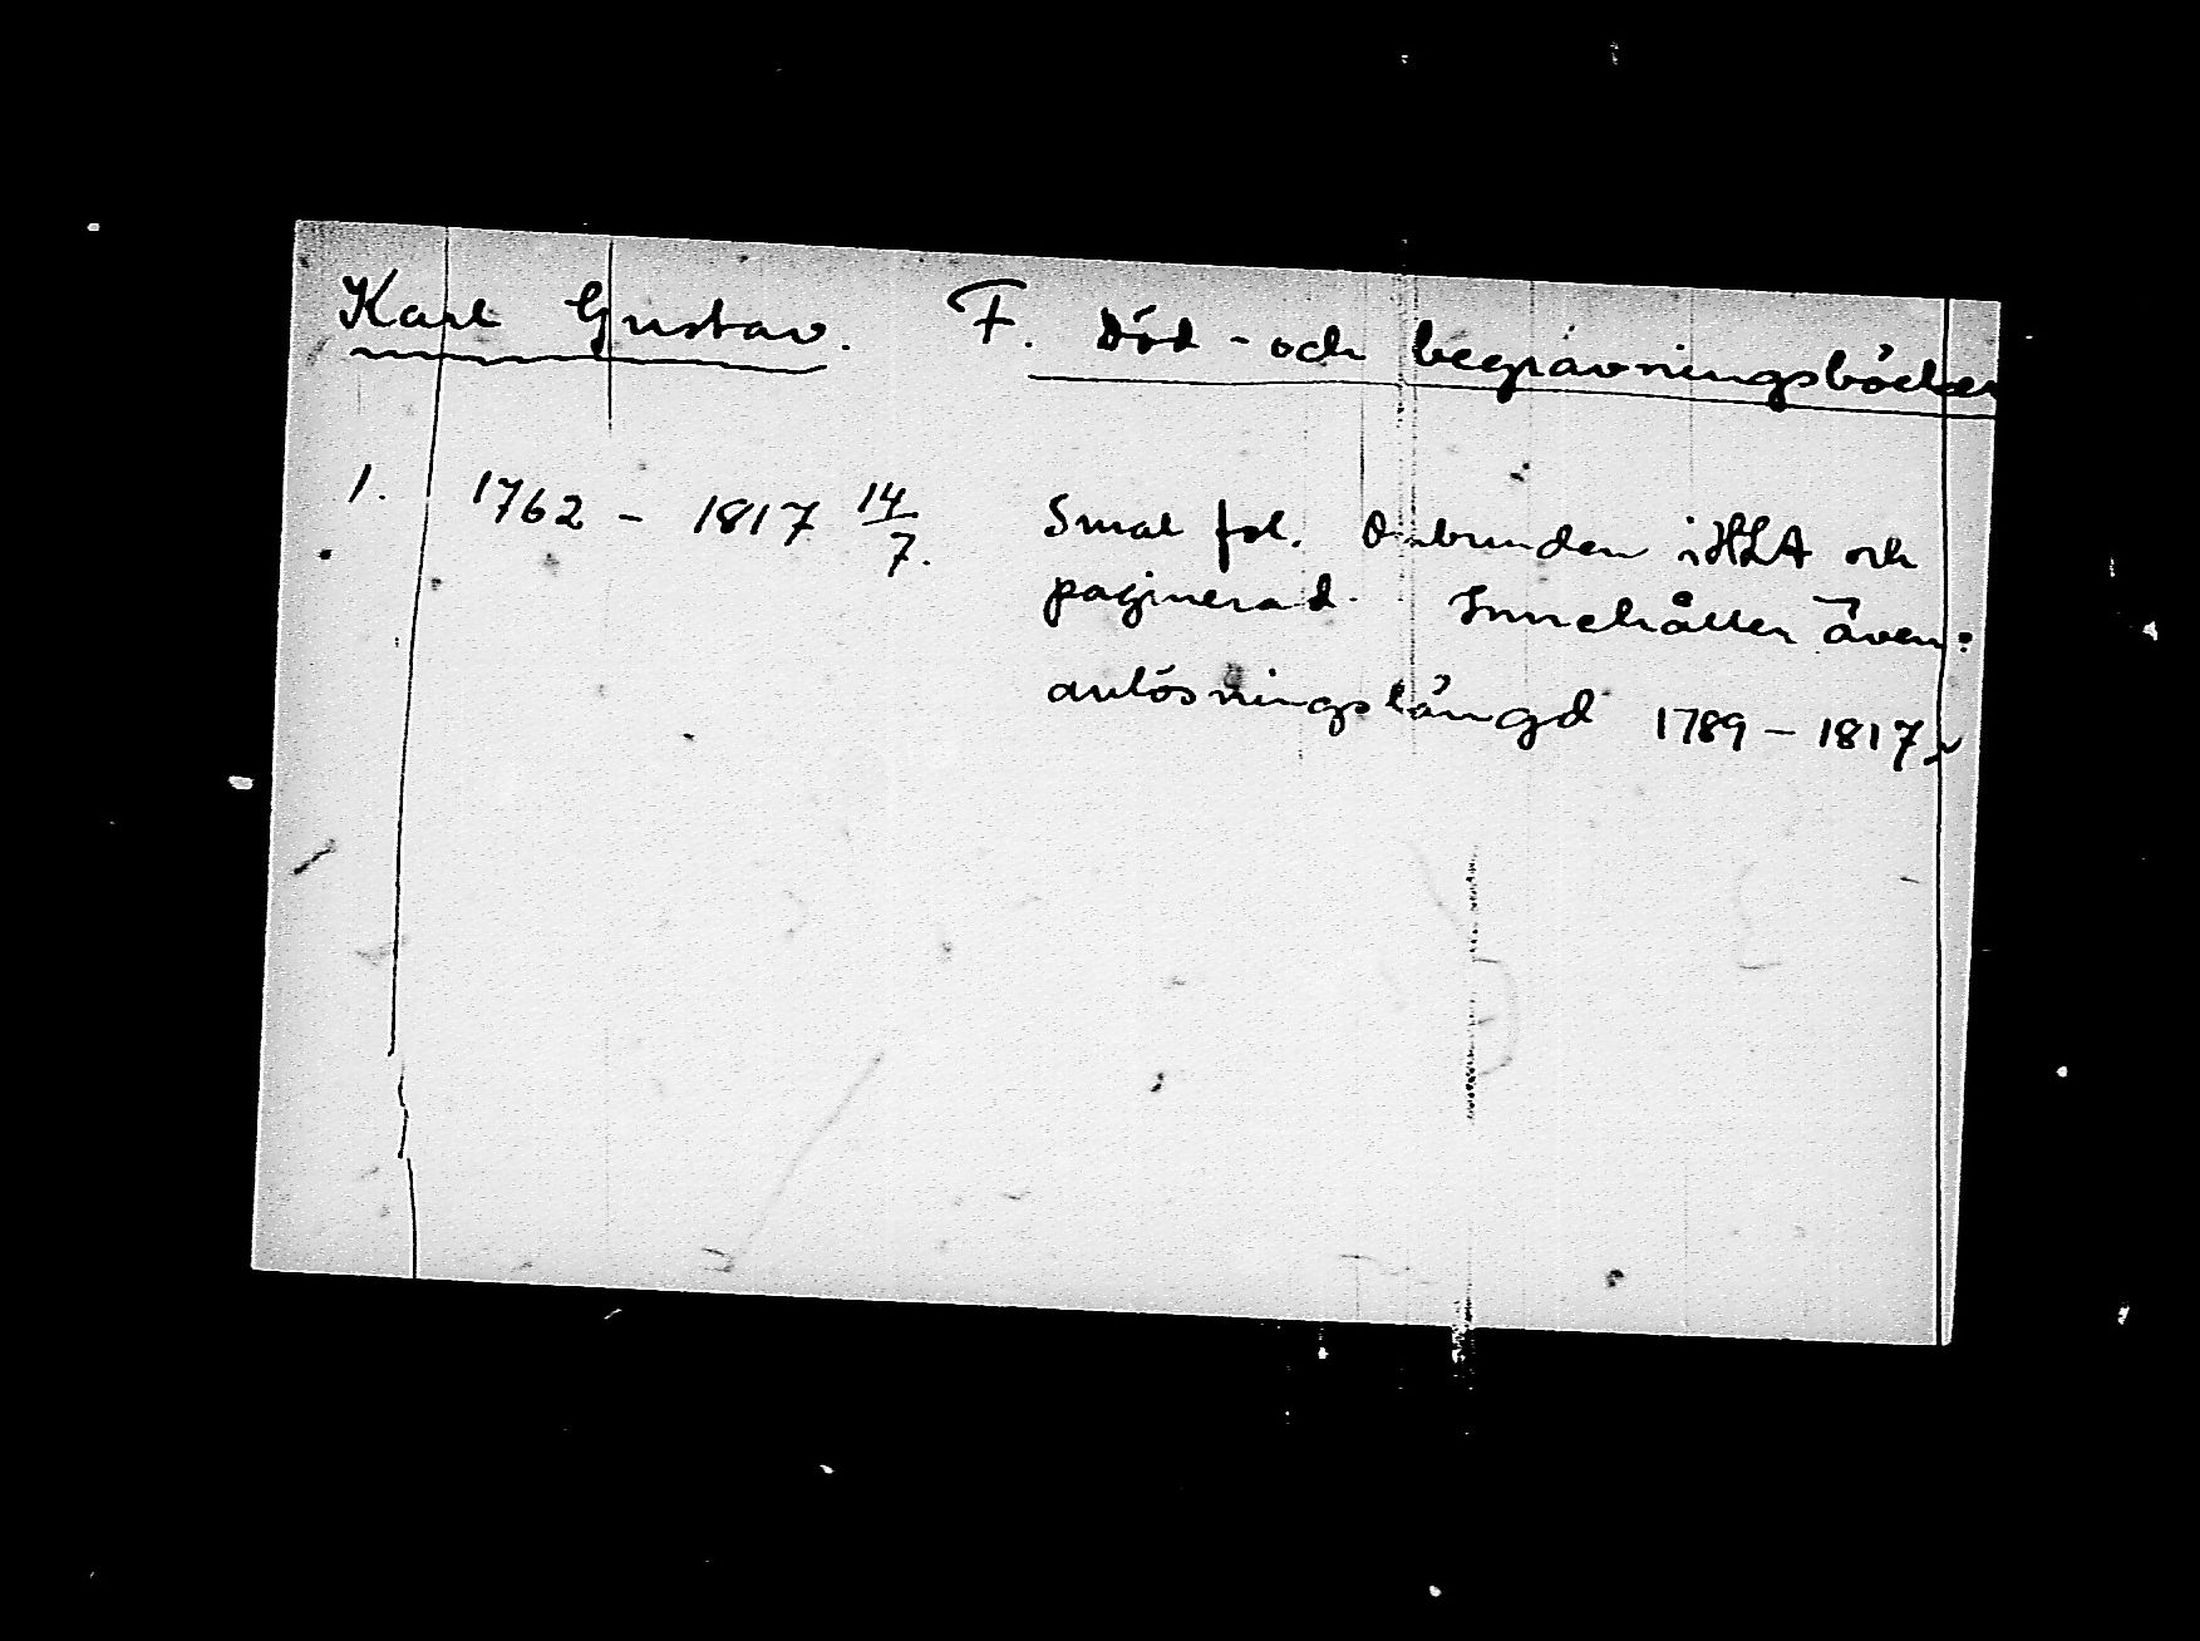 Karl Gustav. F. Död- och begravningsböcker
1. 1762 - 1817 14/7. Smal fol. Ombunden i HLA och
paginerad. Innehåller även:
avlösningslängd 1789 - 1817